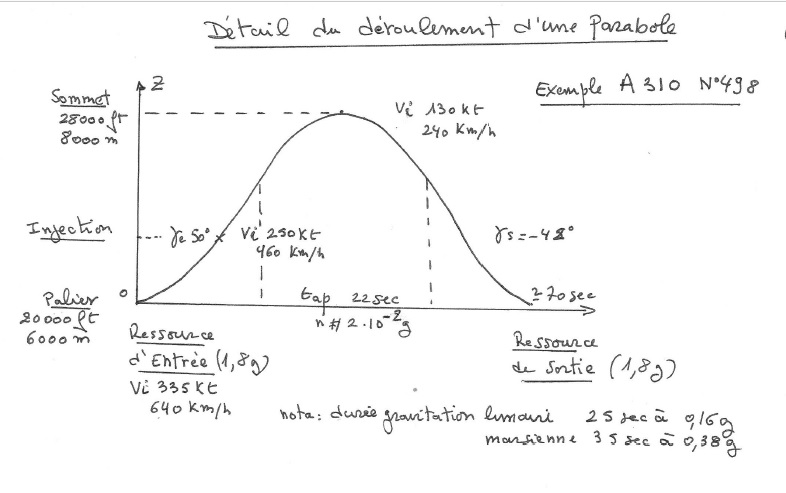 Détail du déroulement d'une Parabole
Exemple A310 N°498
Z
Sommet
28000 ft
8000 m
Vi 130 kt
240 Km/h
Injection
γe 50°
Vi 250 kt
460 Km/h
γs = -42°
0
Palier
20000 ft
6000 m
tap 22 sec
n # 2.10⁻²g
≥ 70 sec
Ressource
d'Entrée (1,8g)
Vi 335 kt
640 km/h
Ressource
de Sortie (1,8g)
nota: durée gravitation lunaire 25 sec à 0,16g
marsienne 35 sec à 0,38g